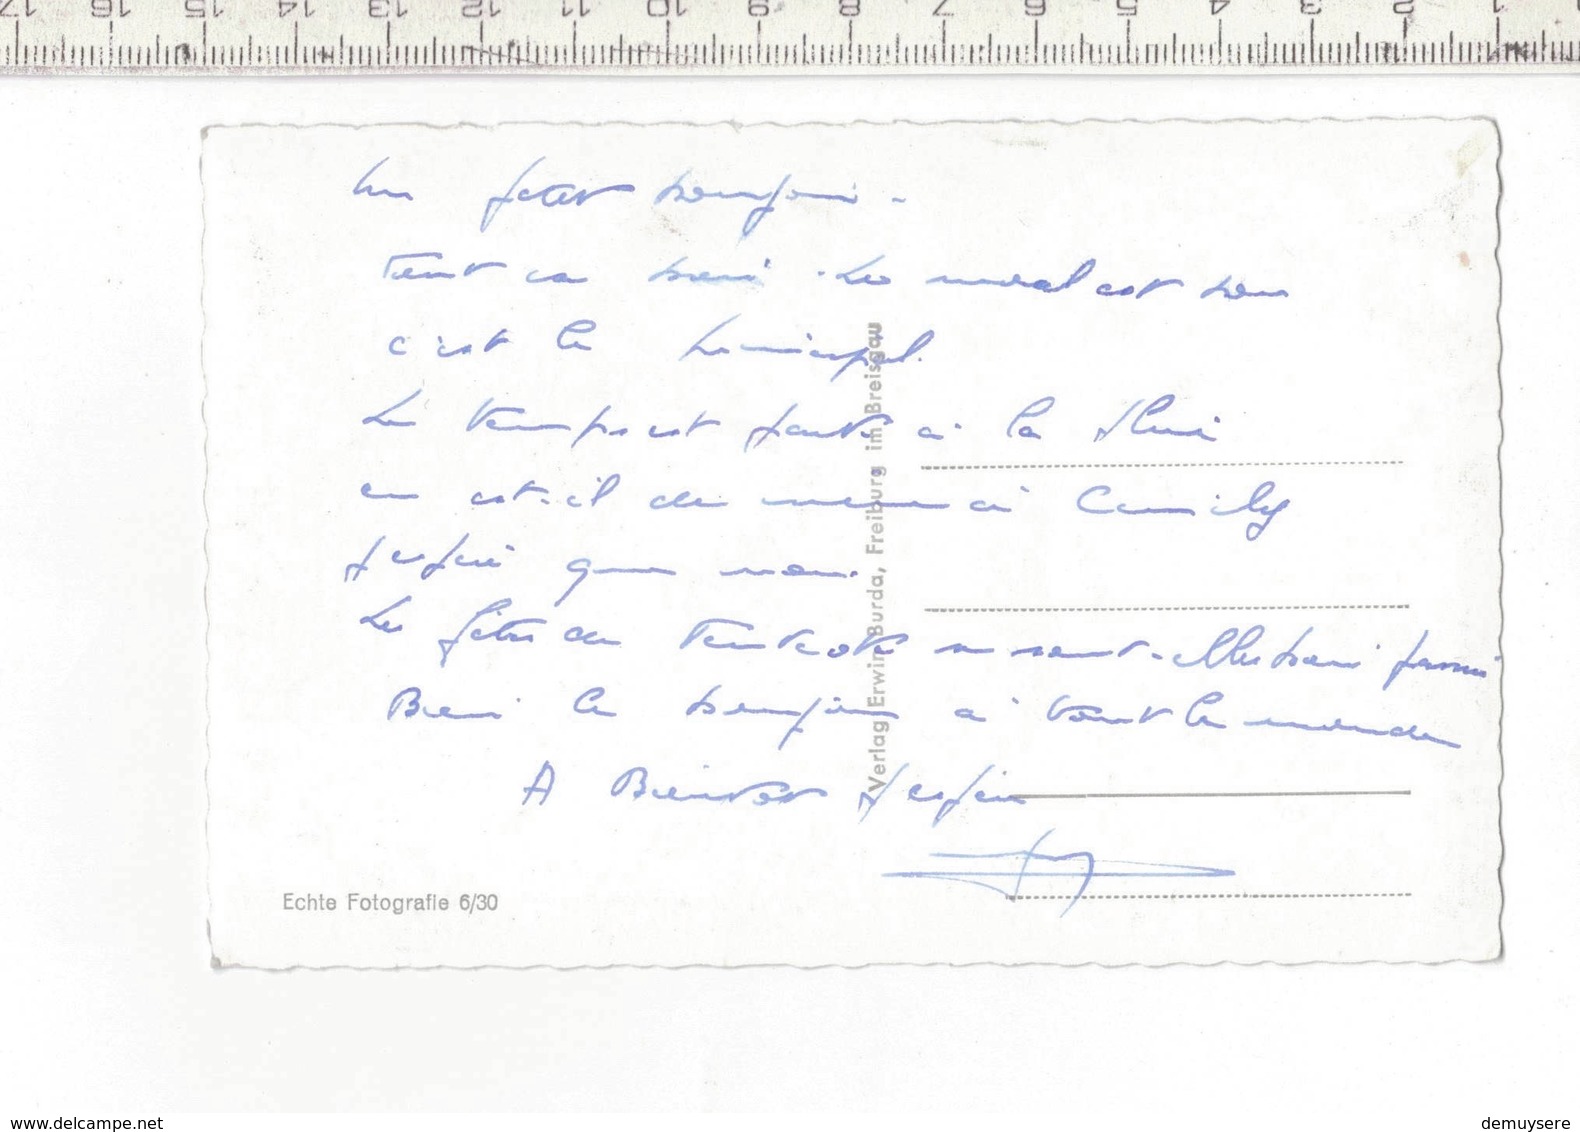 17 16 15 14 13 12 11 10 9 8 7 6 5 4 3 2 1 0
Un petit bonjour.
Tout va bien. Le moral est bon
c'est le principal.
Le temps est porté à la pluie
en est-il de même à
j'espère que non.
Les fêtes de Pentecôte se sont-elles bien
Bien le bonjour à tout le monde
A Bientôt j'espère
Verlag Erwin Burda, Freiburg im Breisgau
Echte Fotografie 6/30
www.delcampe.net
demuysere